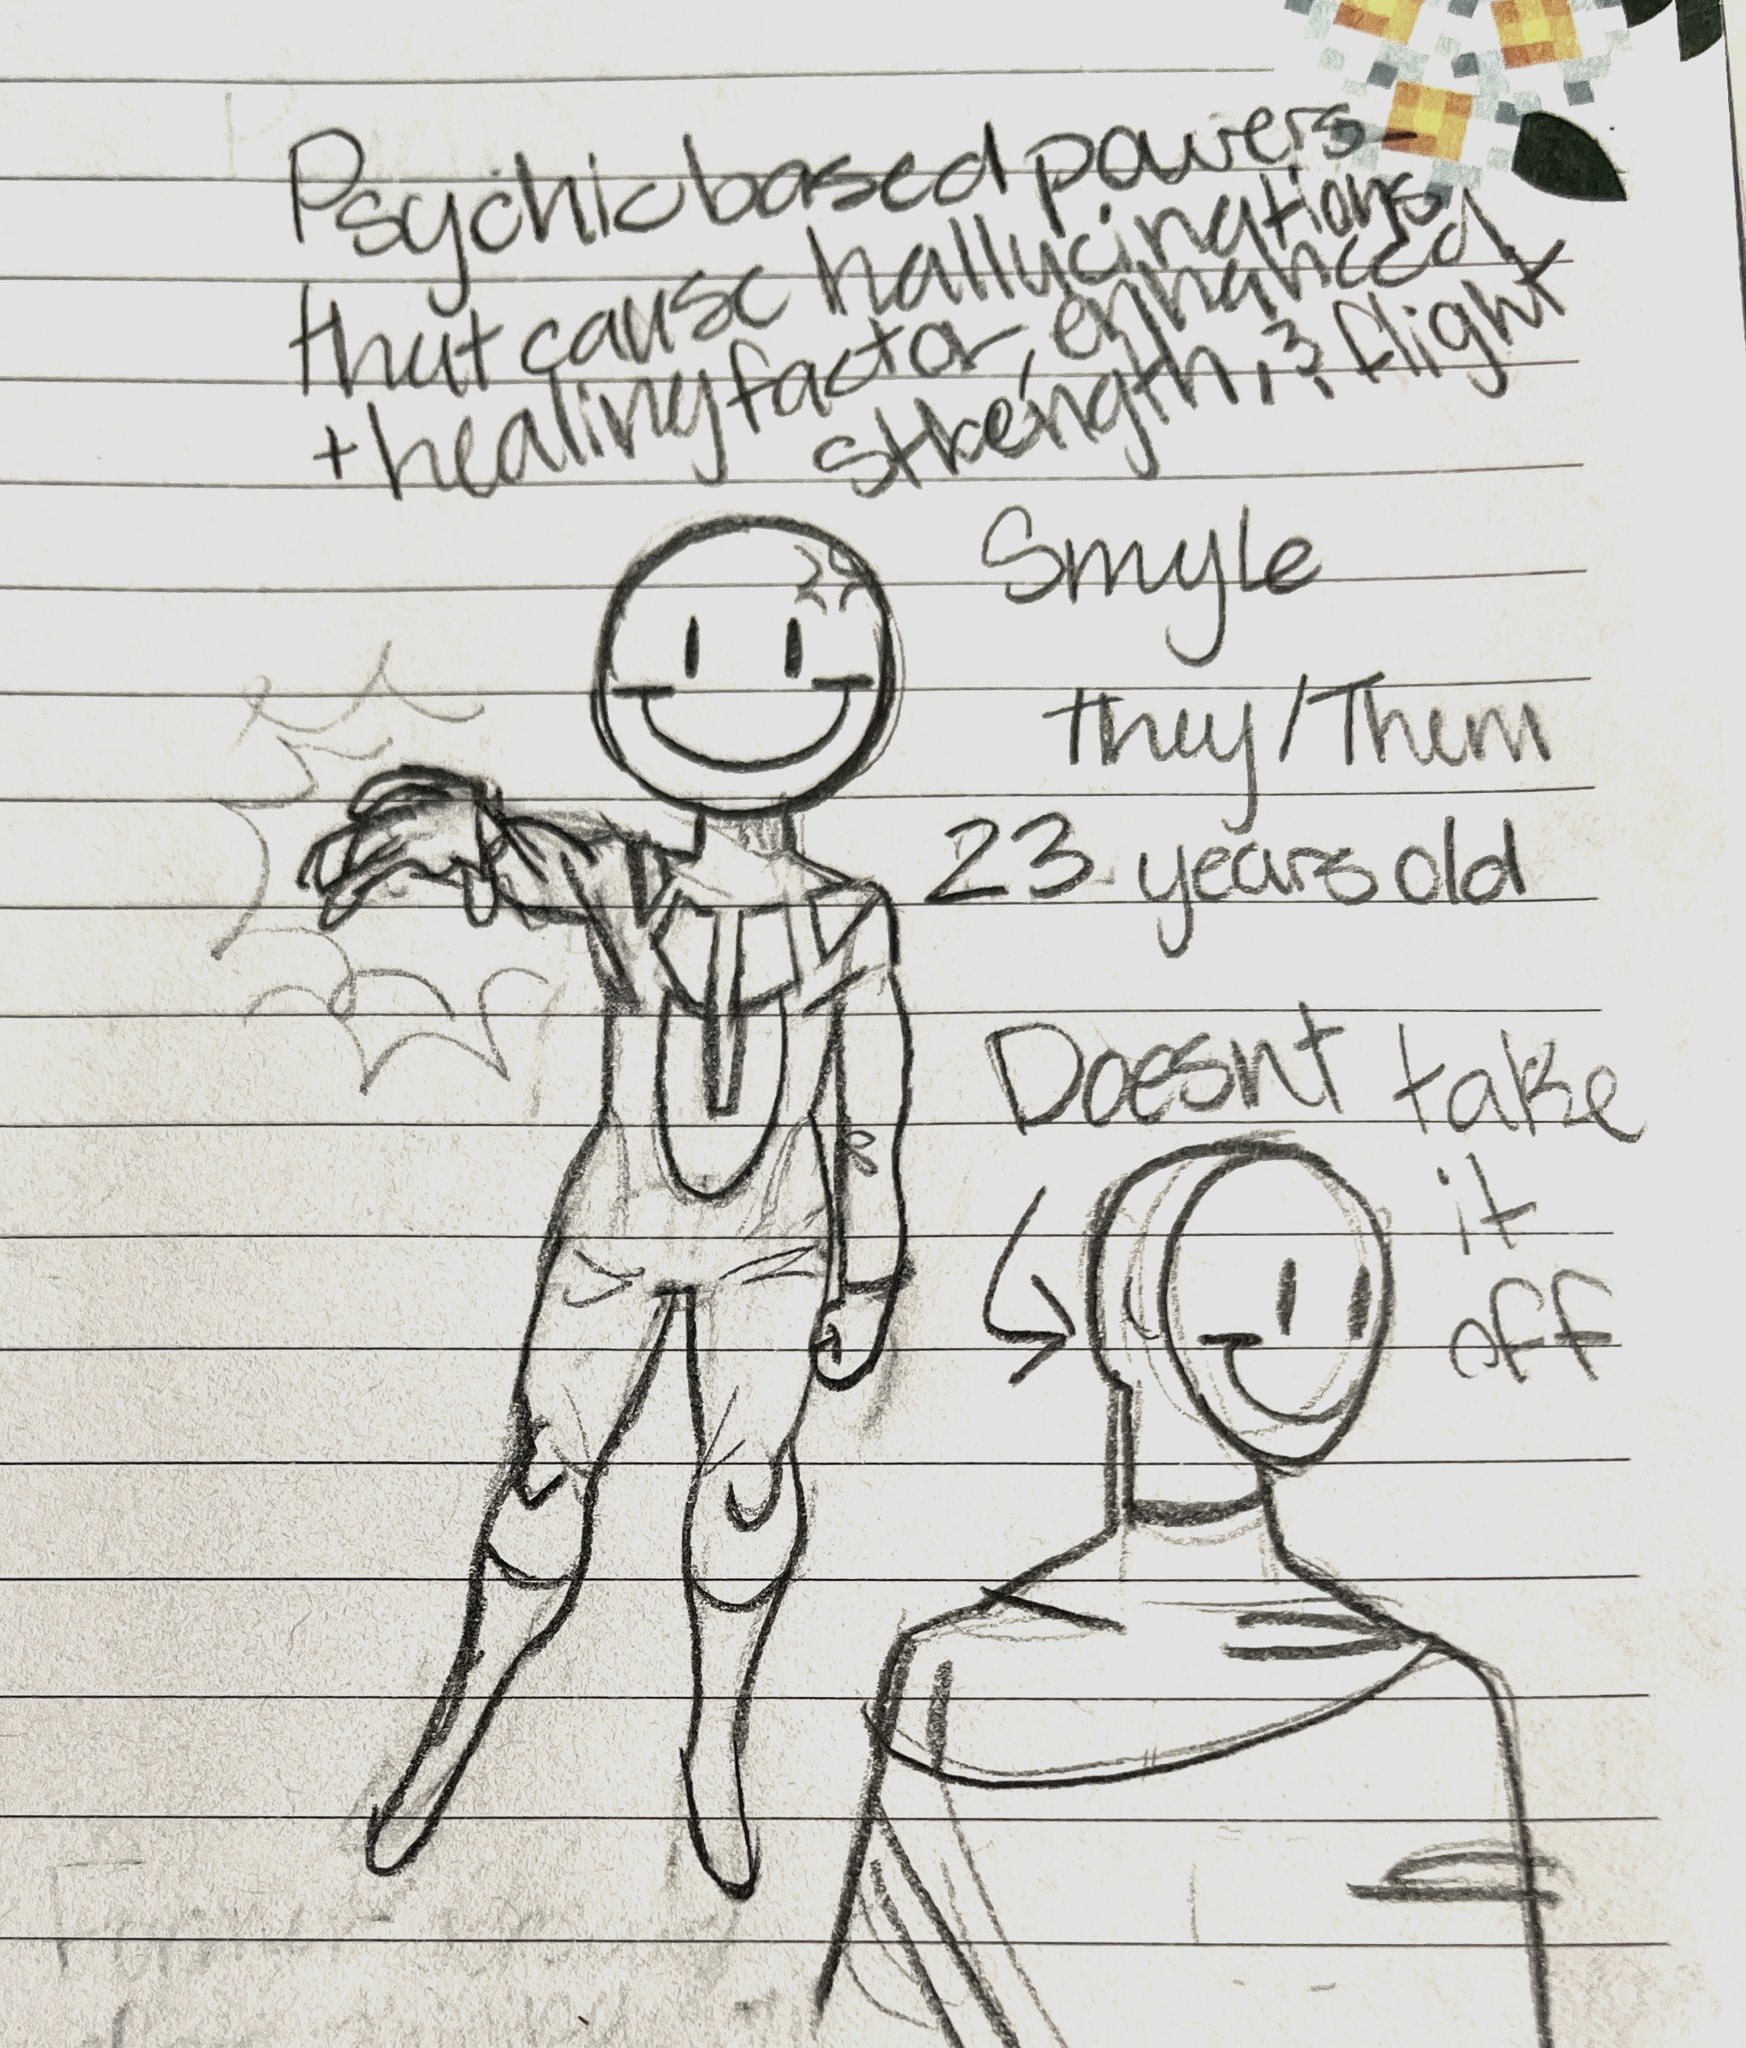 Psychic based powers
that cause hallucinations
+ healing factor, enhanced
strength, & flight
Smyle
They/Them
23 years old
Doesnt take
it
off